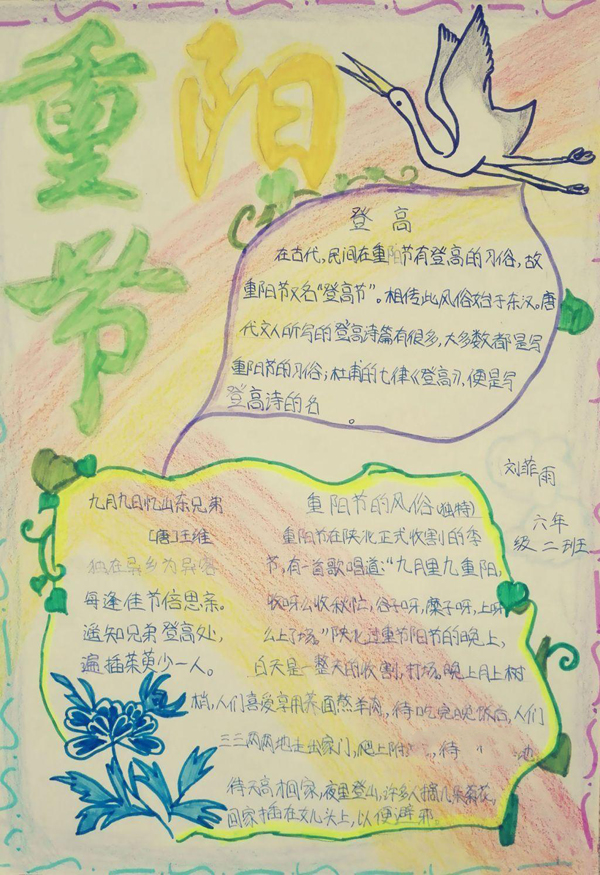 重阳
节
登高
在古代，民间在重阳节有登高的习俗，故
重阳节又名“登高节”。相传此风俗始于东汉。唐
代文人所写的登高诗篇有很多，大多数都是写
重阳节的习俗；杜甫的七律《登高》，便是写
登高诗的名
。
刘菲雨
六年
级二班
九月九日忆山东兄弟
[唐]王维
独在异乡为异客
每逢佳节倍思亲。
遥知兄弟登高处，
遍插茱萸少一人。
重阳节的风俗(独特)
重阳节在陕北正式收割的季
节，有一首歌唱道：“九月里九重阳，
收呀么收秋忙，谷子呀，糜子呀，上呀
么上了场。”陕北过重节阳节的晚上，
白天是一整天的收割，打场。晚上月上树
梢，人们喜爱享用荞面熬羊肉，待吃完晚饭后，人们
三三两两地走出家门，爬上附 待 地
待天高才回家，夜里登山，许多人摘几朵菊花，
回家插在女儿头上，以便避邪。